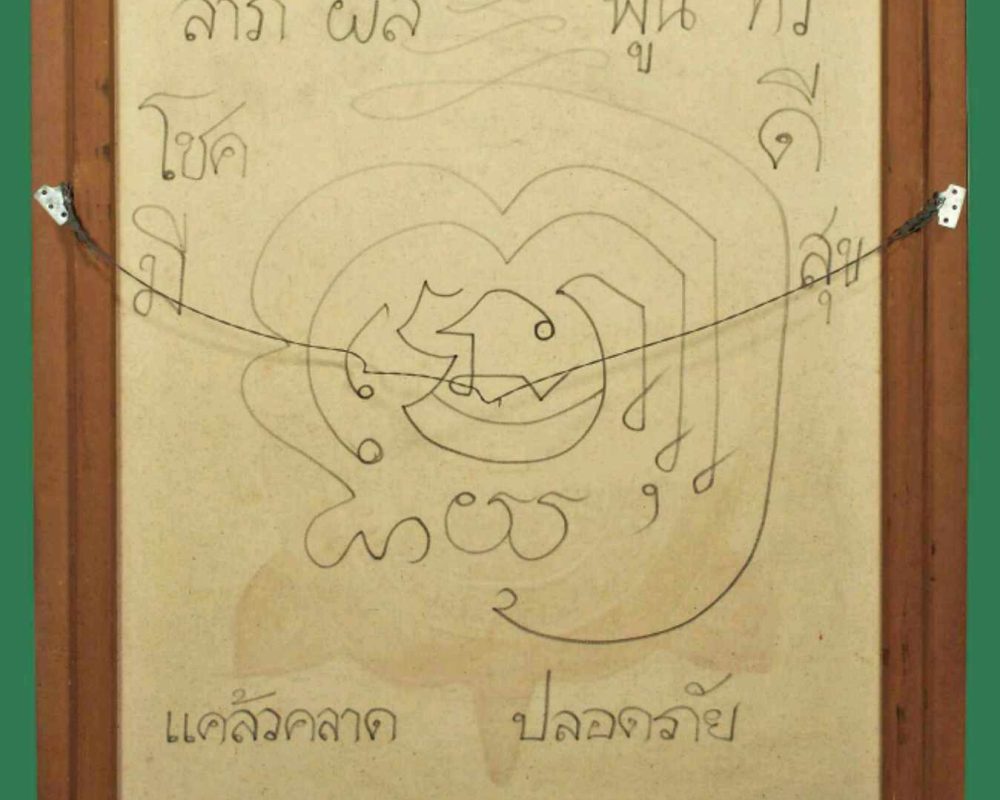 ลาภ ผล พูน ทวี
โชค ดี
มี สุข
แคล้วคลาด ปลอดภัย